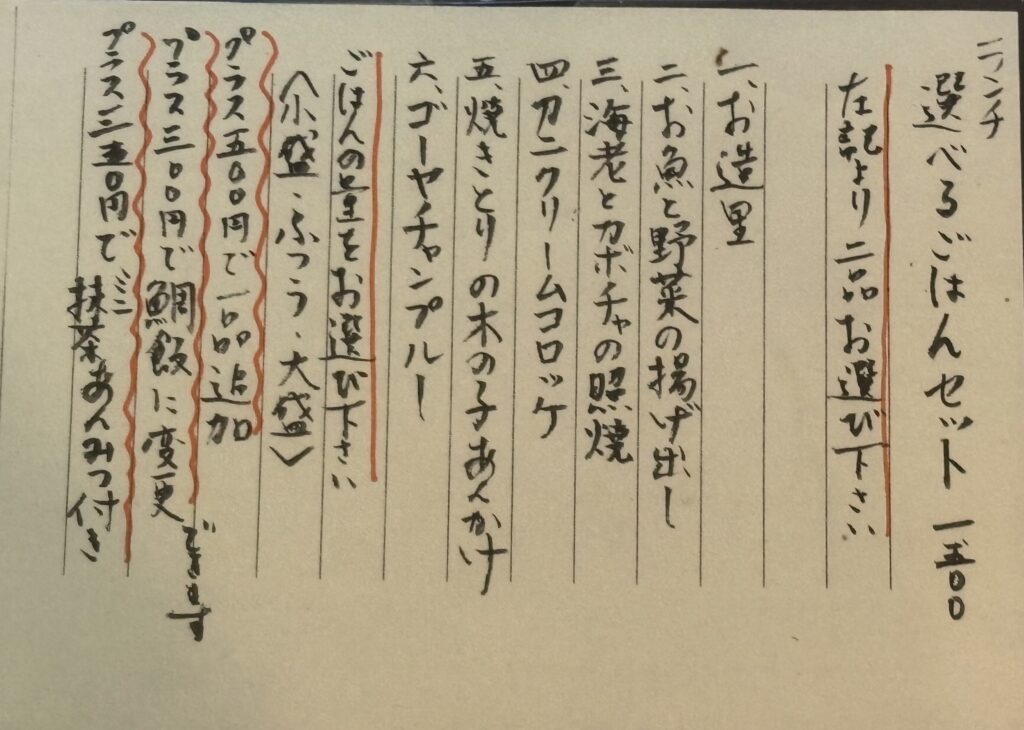 ランチ
選べるごはんセット 一五〇〇
左記より二品お選び下さい
一、お造里
二、お魚と野菜の揚げ出し
三、海老とカボチャの照焼
四、カニクリームコロッケ
五、焼きとりの木の子あんかけ
六、ゴーヤチャンプルー
ごはんの量をお選び下さい
〈小盛・ふつう・大盛〉
プラス五〇〇円で一品追加
プラス三〇〇円で鯛飯に変更できます
プラス三五〇円でミニ抹茶あんみつ付き